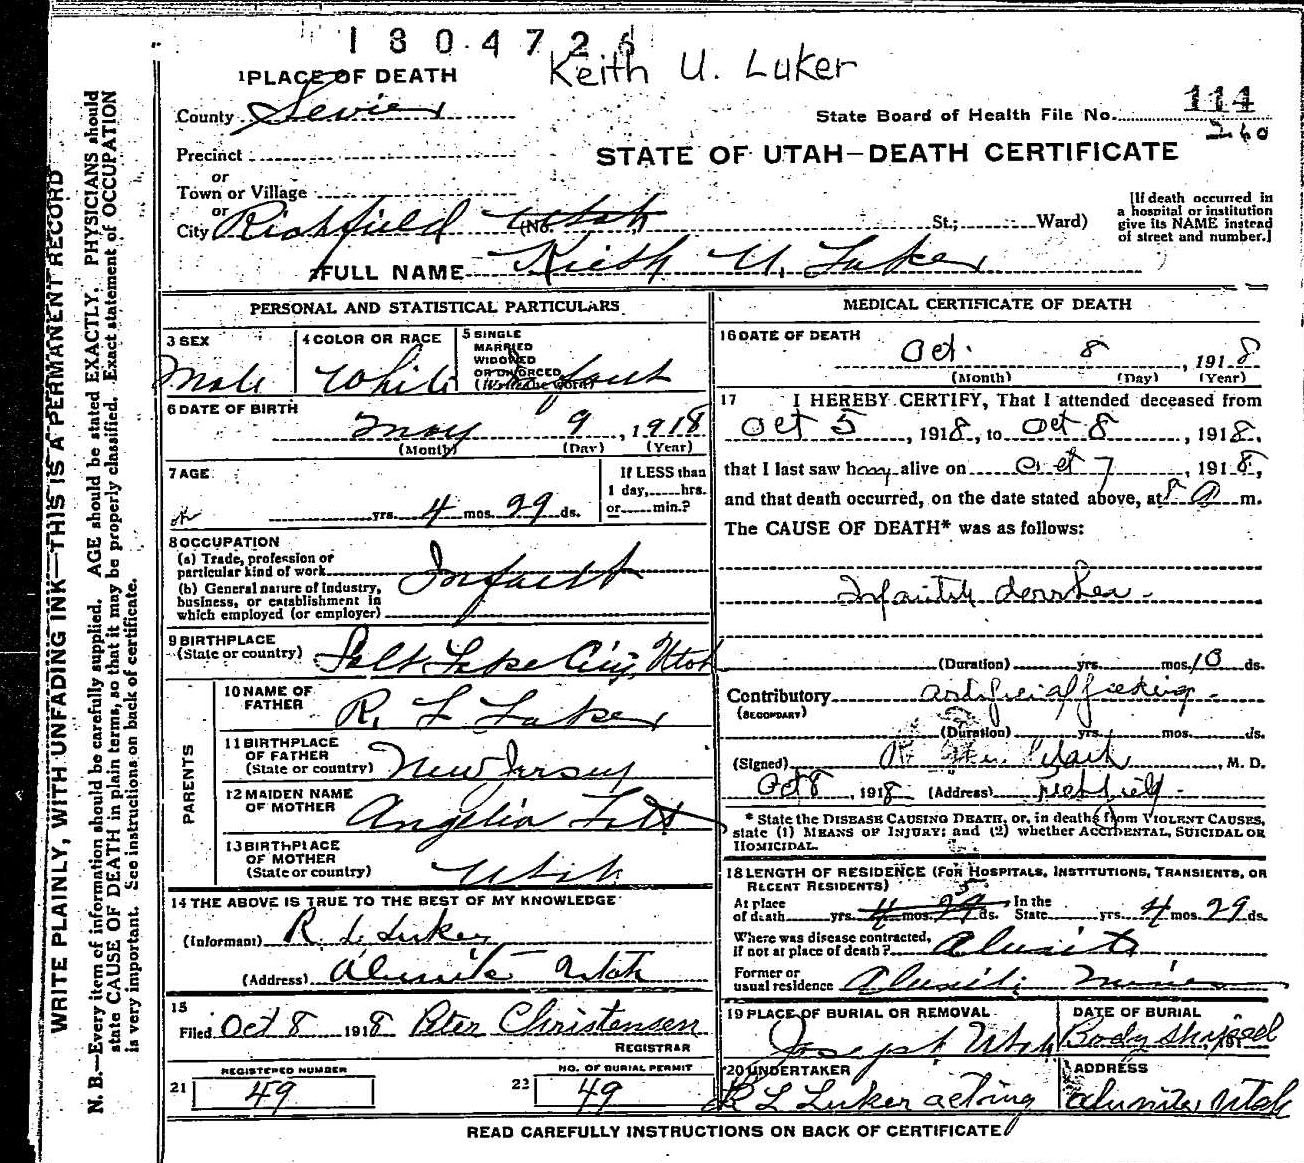 1804726
Keith U. Luker
1 PLACE OF DEATH
County Sevier
State Board of Health File No. 114
260
Precinct
STATE OF UTAH—DEATH CERTIFICATE
or
Town or Village
or
City Richfield Utah (No. St.; Ward)
[If death occurred in
a hospital or institution
give its NAME instead
of street and number.]
FULL NAME Kieth U. Luker
WRITE PLAINLY, WITH UNFADING INK—THIS IS A PERMANENT RECORD
N. B.—Every item of information should be carefully supplied. AGE should be stated EXACTLY. PHYSICIANS should
state CAUSE OF DEATH in plain terms, so that it may be properly classified. Exact statement of OCCUPATION
is very important. See instructions on back of certificate.
PERSONAL AND STATISTICAL PARTICULARS
3 SEX
Male
4 COLOR OR RACE
White
5 SINGLE
MARRIED
WIDOWED
OR DIVORCED
(Write the word)
Infant
6 DATE OF BIRTH
May 9, 1918
(Month) (Day) (Year)
7 AGE
yrs. 4 mos. 29 ds.
If LESS than
1 day, hrs.
or min.?
8 OCCUPATION
(a) Trade, profession or
particular kind of work Infant
(b) General nature of Industry,
business, or establishment in
which employed (or employer)
9 BIRTHPLACE
(State or country) Salt Lake City, Utah
PARENTS
10 NAME OF
FATHER R. L Luker
11 BIRTHPLACE
OF FATHER
(State or country) New Jersey
12 MAIDEN NAME
OF MOTHER Angelia
13 BIRTHPLACE
OF MOTHER
(State or country) Utah
14 THE ABOVE IS TRUE TO THE BEST OF MY KNOWLEDGE
(Informant) R. L. Luker
(Address) Alunite Utah
15
Filed Oct 8 1918 Peter Christensen
REGISTRAR
21 REGISTERED NUMBER
49
22 NO. OF BURIAL PERMIT
49
MEDICAL CERTIFICATE OF DEATH
16 DATE OF DEATH
Oct. 8, 1918
(Month) (Day) (Year)
17 I HEREBY CERTIFY, That I attended deceased from
Oct 5, 1918, to Oct 8, 1918,
that I last saw h alive on Oct 7, 1918,
and that death occurred, on the date stated above, at m.
The CAUSE OF DEATH* was as follows:
(Duration) yrs. mos. 10 ds.
Contributory artificial feeding
(SECONDARY)
(Duration) yrs. mos. ds.
(Signed) , M. D.
Oct 8, 1918 (Address) Richfield
* State the DISEASE CAUSING DEATH, or, in deaths from VIOLENT CAUSES,
state (1) MEANS OF INJURY; and (2) whether ACCIDENTAL, SUICIDAL OR
HOMICIDAL.
18 LENGTH OF RESIDENCE (FOR HOSPITALS, INSTITUTIONS, TRANSIENTS, OR
RECENT RESIDENTS)
At place
of death yrs. 4 mos. 29 ds. 5 In the
State yrs. 4 mos. 29 ds.
Where was disease contracted,
if not at place of death? Alunite
Former or
usual residence Alunite
19 PLACE OF BURIAL OR REMOVAL
Joseph Utah
DATE OF BURIAL
Body shipped
20 UNDERTAKER
R L Luker acting
ADDRESS
Alunite, Utah
READ CAREFULLY INSTRUCTIONS ON BACK OF CERTIFICATE